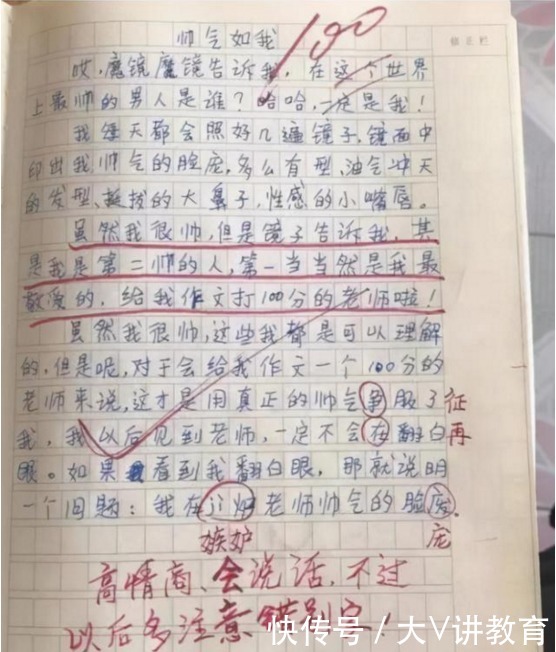 帅气如我
100
哎，魔镜魔镜告诉我，在这个世界
上最帅的男人是谁？哈哈，一定是我！
我每天都会照好几遍镜子，镜面中
印出我帅气的脸庞，多么有型，油气冲天
的发型、挺拔的大鼻子，性感的小嘴唇。
虽然我很帅，但是镜子告诉我，其
是我是第二帅的人，第一当当然是我最
敬爱的，给我作文打100分的老师啦！
虽然我很帅，这些我都是可以理解
的，但是呢，对于会给我作文一个100分的
老师来说，这才是用真正的帅气争服了 征
我，我以后见到老师，一定不会在翻白 再
眼。如果看到我翻白眼，那就说明
一个问题：我在老师帅气的脸
嫉妒 庞
高情商、会说话，不过
以后多注意错别字！
快传号／大V讲教育